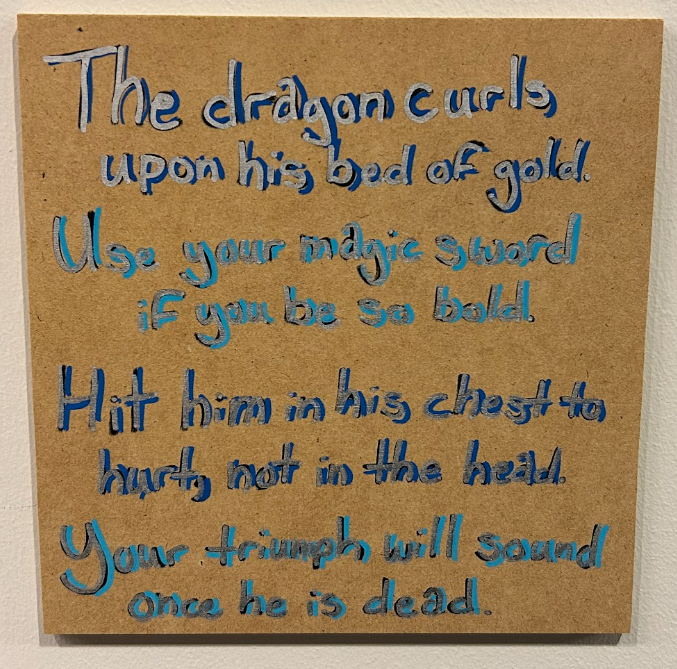 The dragon curls
upon his bed of gold.
Use your magic sword
if you be so bold.
Hit him in his chest to
hurt, not in the head.
Your triumph will sound
once he is dead.